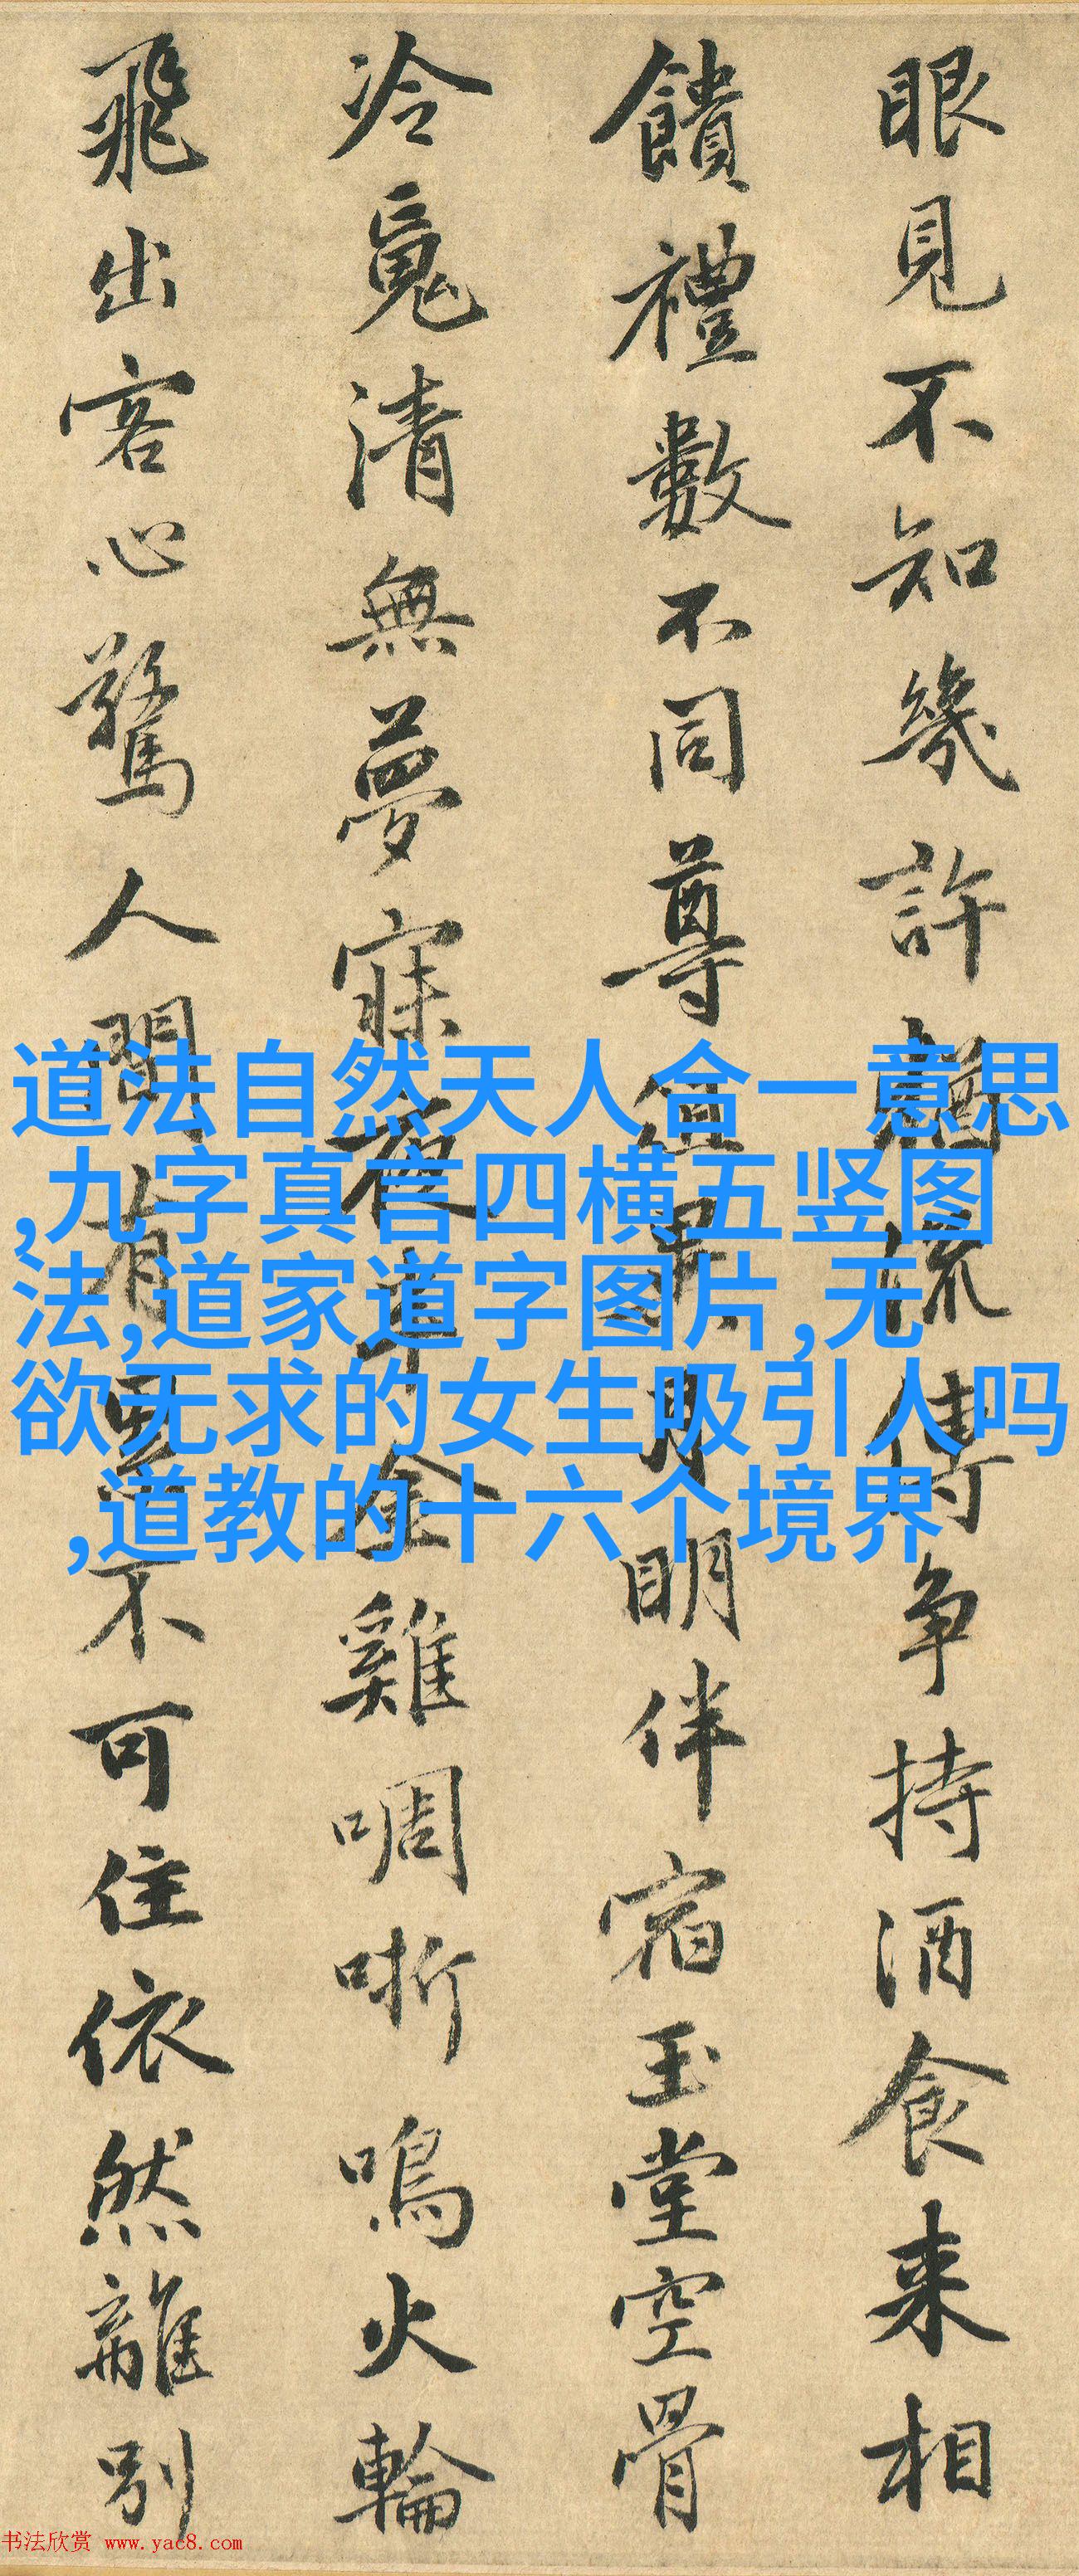 眼見不知幾許猶流傳争持酒食来相
饋禮數不同尊俎異月明伴宿玉堂空骨
冷魂清無夢寐夜半金雞啁哳鳴火輪
飛出客心驚人間有累不可住依然離別
道法自然天人合一意思
,九字真言四横五竖图
法,道家道字图片,无
欲无求的女生吸引人吗
,道教的十六个境界
书法欣赏 www.yac8.com